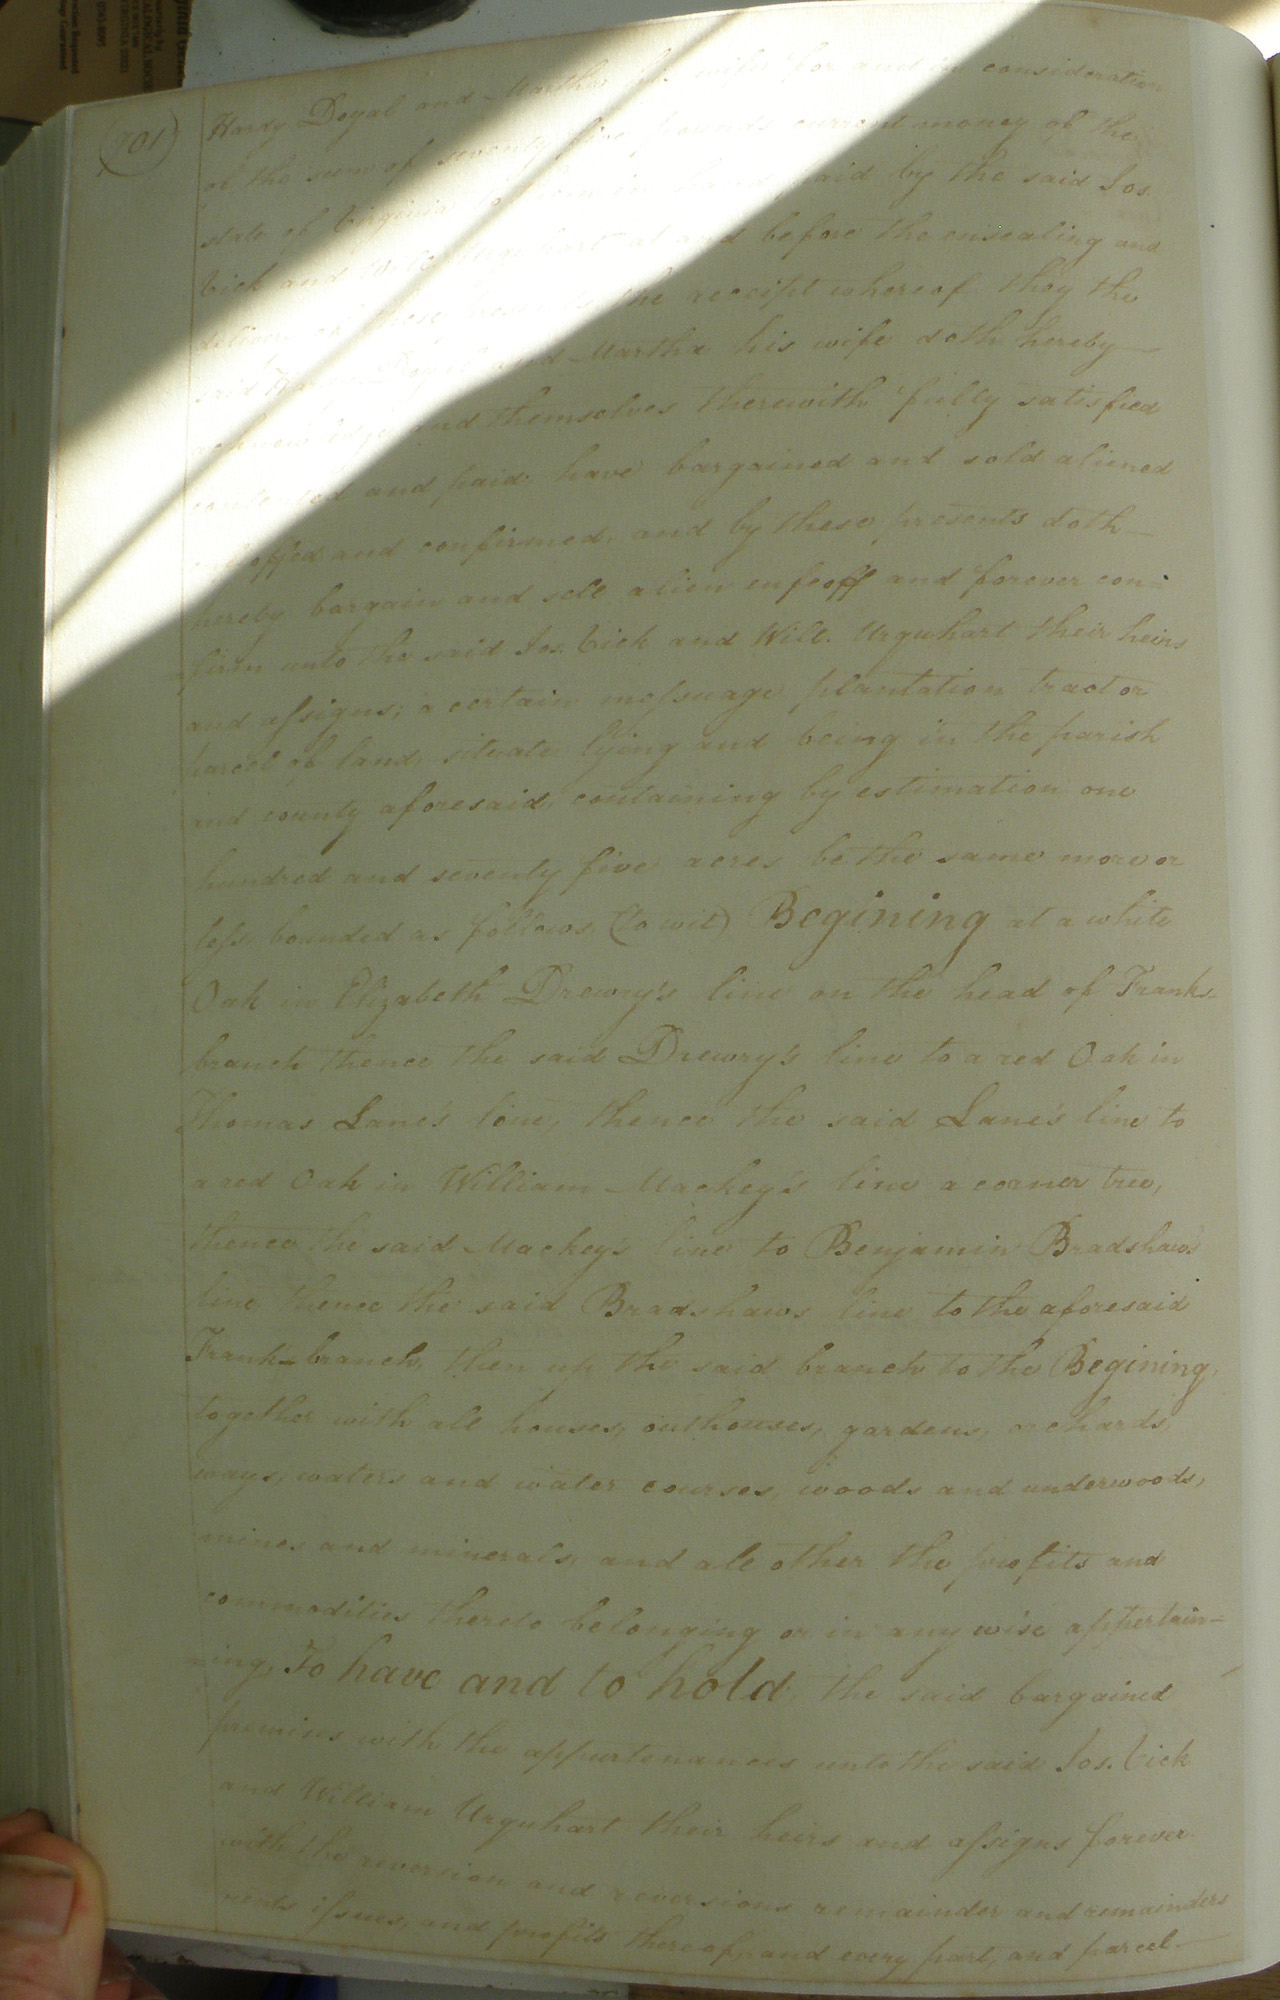 (701)
Hardy Doyal and Martha his wife for and in consideration
of the sum of seventy five pounds current money of the
state of Virginia to them in hand paid by the said Jos.
Vick and Will. Urquhart at and before the ensealing and
delivery of these presents the receipt whereof they the
said Hardy Doyal and Martha his wife doth hereby—
acknowledge and themselves therewith fully satisfied
contented and paid have bargained and sold aliened
enfeoffed and confirmed, and by these presents doth—
hereby bargain and sell alien enfeoff and forever con=
firm unto the said Jos. Vick and Will. Urquhart their heirs
and assigns; a certain messuage plantation tract or
parcel of land, situate lying and being in the parish
and county aforesaid, containing by estimation one
hundred and seventy five acres be the same more or
less bounded as follows (to wit) Begining at a white
Oak in Elizabeth Drewry's line on the head of Franks-
branch thence the said Drewry's line to a red Oak in
Thomas Lane's line, thence the said Lane's line to
a red Oak in William Mackey's line a corner tree,
thence the said Mackeys line to Benjamin Bradshaws
line, thence the said Bradshaws line to the aforesaid
Frank-branch, then up the said branch to the Begining,
together with all houses, outhouses, gardens, orchards,
ways, waters and water courses, woods and underwoods,
mines and minerals, and all other the profits and
commodities thereto belonging or in any wise appertain=
=ing, To have and to hold, the said bargained
premises with the appurtenances unto the said Jos. Vick
and William Urquhart their heirs and assigns forever
with the reversion and reversions remainder and remainders
rents issues, and profits thereof, and every part, and parcel—